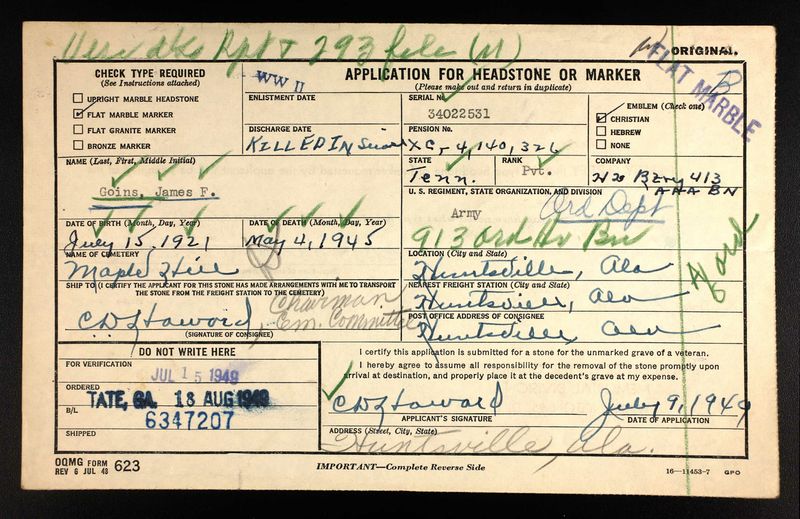 Rpt + 293 file (M)
ORIGINAL.
CHECK TYPE REQUIRED
(See Instructions attached)
UPRIGHT MARBLE HEADSTONE
FLAT MARBLE MARKER
FLAT GRANITE MARKER
BRONZE MARKER
WW II
APPLICATION FOR HEADSTONE OR MARKER
(Please make out and return in duplicate)
FLAT MARBLE
B
ENLISTMENT DATE
SERIAL No.
34022531
EMBLEM (Check one)
CHRISTIAN
HEBREW
NONE
DISCHARGE DATE
KILLED IN
PENSION No.
XC-4,140,326
NAME (Last, First, Middle Initial)
Goins, James F.
STATE
Tenn.
RANK
Pvt.
COMPANY
Hq Btry 413
AAA BN
U. S. REGIMENT, STATE ORGANIZATION, AND DIVISION
Army
Ord Dept
913 Ord Bn
DATE OF BIRTH (Month, Day, Year)
July 15, 1921
DATE OF DEATH (Month, Day, Year)
May 4, 1945
NAME OF CEMETERY
Maple Hill
LOCATION (City and State)
Huntsville, Ala
SHIP TO (I CERTIFY THE APPLICANT FOR THIS STONE HAS MADE ARRANGEMENTS WITH ME TO TRANSPORT
THE STONE FROM THE FREIGHT STATION TO THE CEMETERY)
NEAREST FREIGHT STATION (City and State)
Huntsville, Ala
CD Howard
Chairman
Cem. Committee
(SIGNATURE OF CONSIGNEE)
POST OFFICE ADDRESS OF CONSIGNEE
Huntsville, Ala
DO NOT WRITE HERE
FOR VERIFICATION
JUL 15 1949
ORDERED
TATE, GA. 18 AUG 1949
B/L
6347207
SHIPPED
I certify this application is submitted for a stone for the unmarked grave of a veteran.
I hereby agree to assume all responsibility for the removal of the stone promptly upon
arrival at destination, and properly place it at the decedent's grave at my expense.
CD Howard
July 9, 1949
APPLICANT'S SIGNATURE
DATE OF APPLICATION
ADDRESS (Street, City, State)
Huntsville, Ala.
OQMG FORM 623
REV 6 JUL 48
IMPORTANT—Complete Reverse Side
16—11453-7 GPO